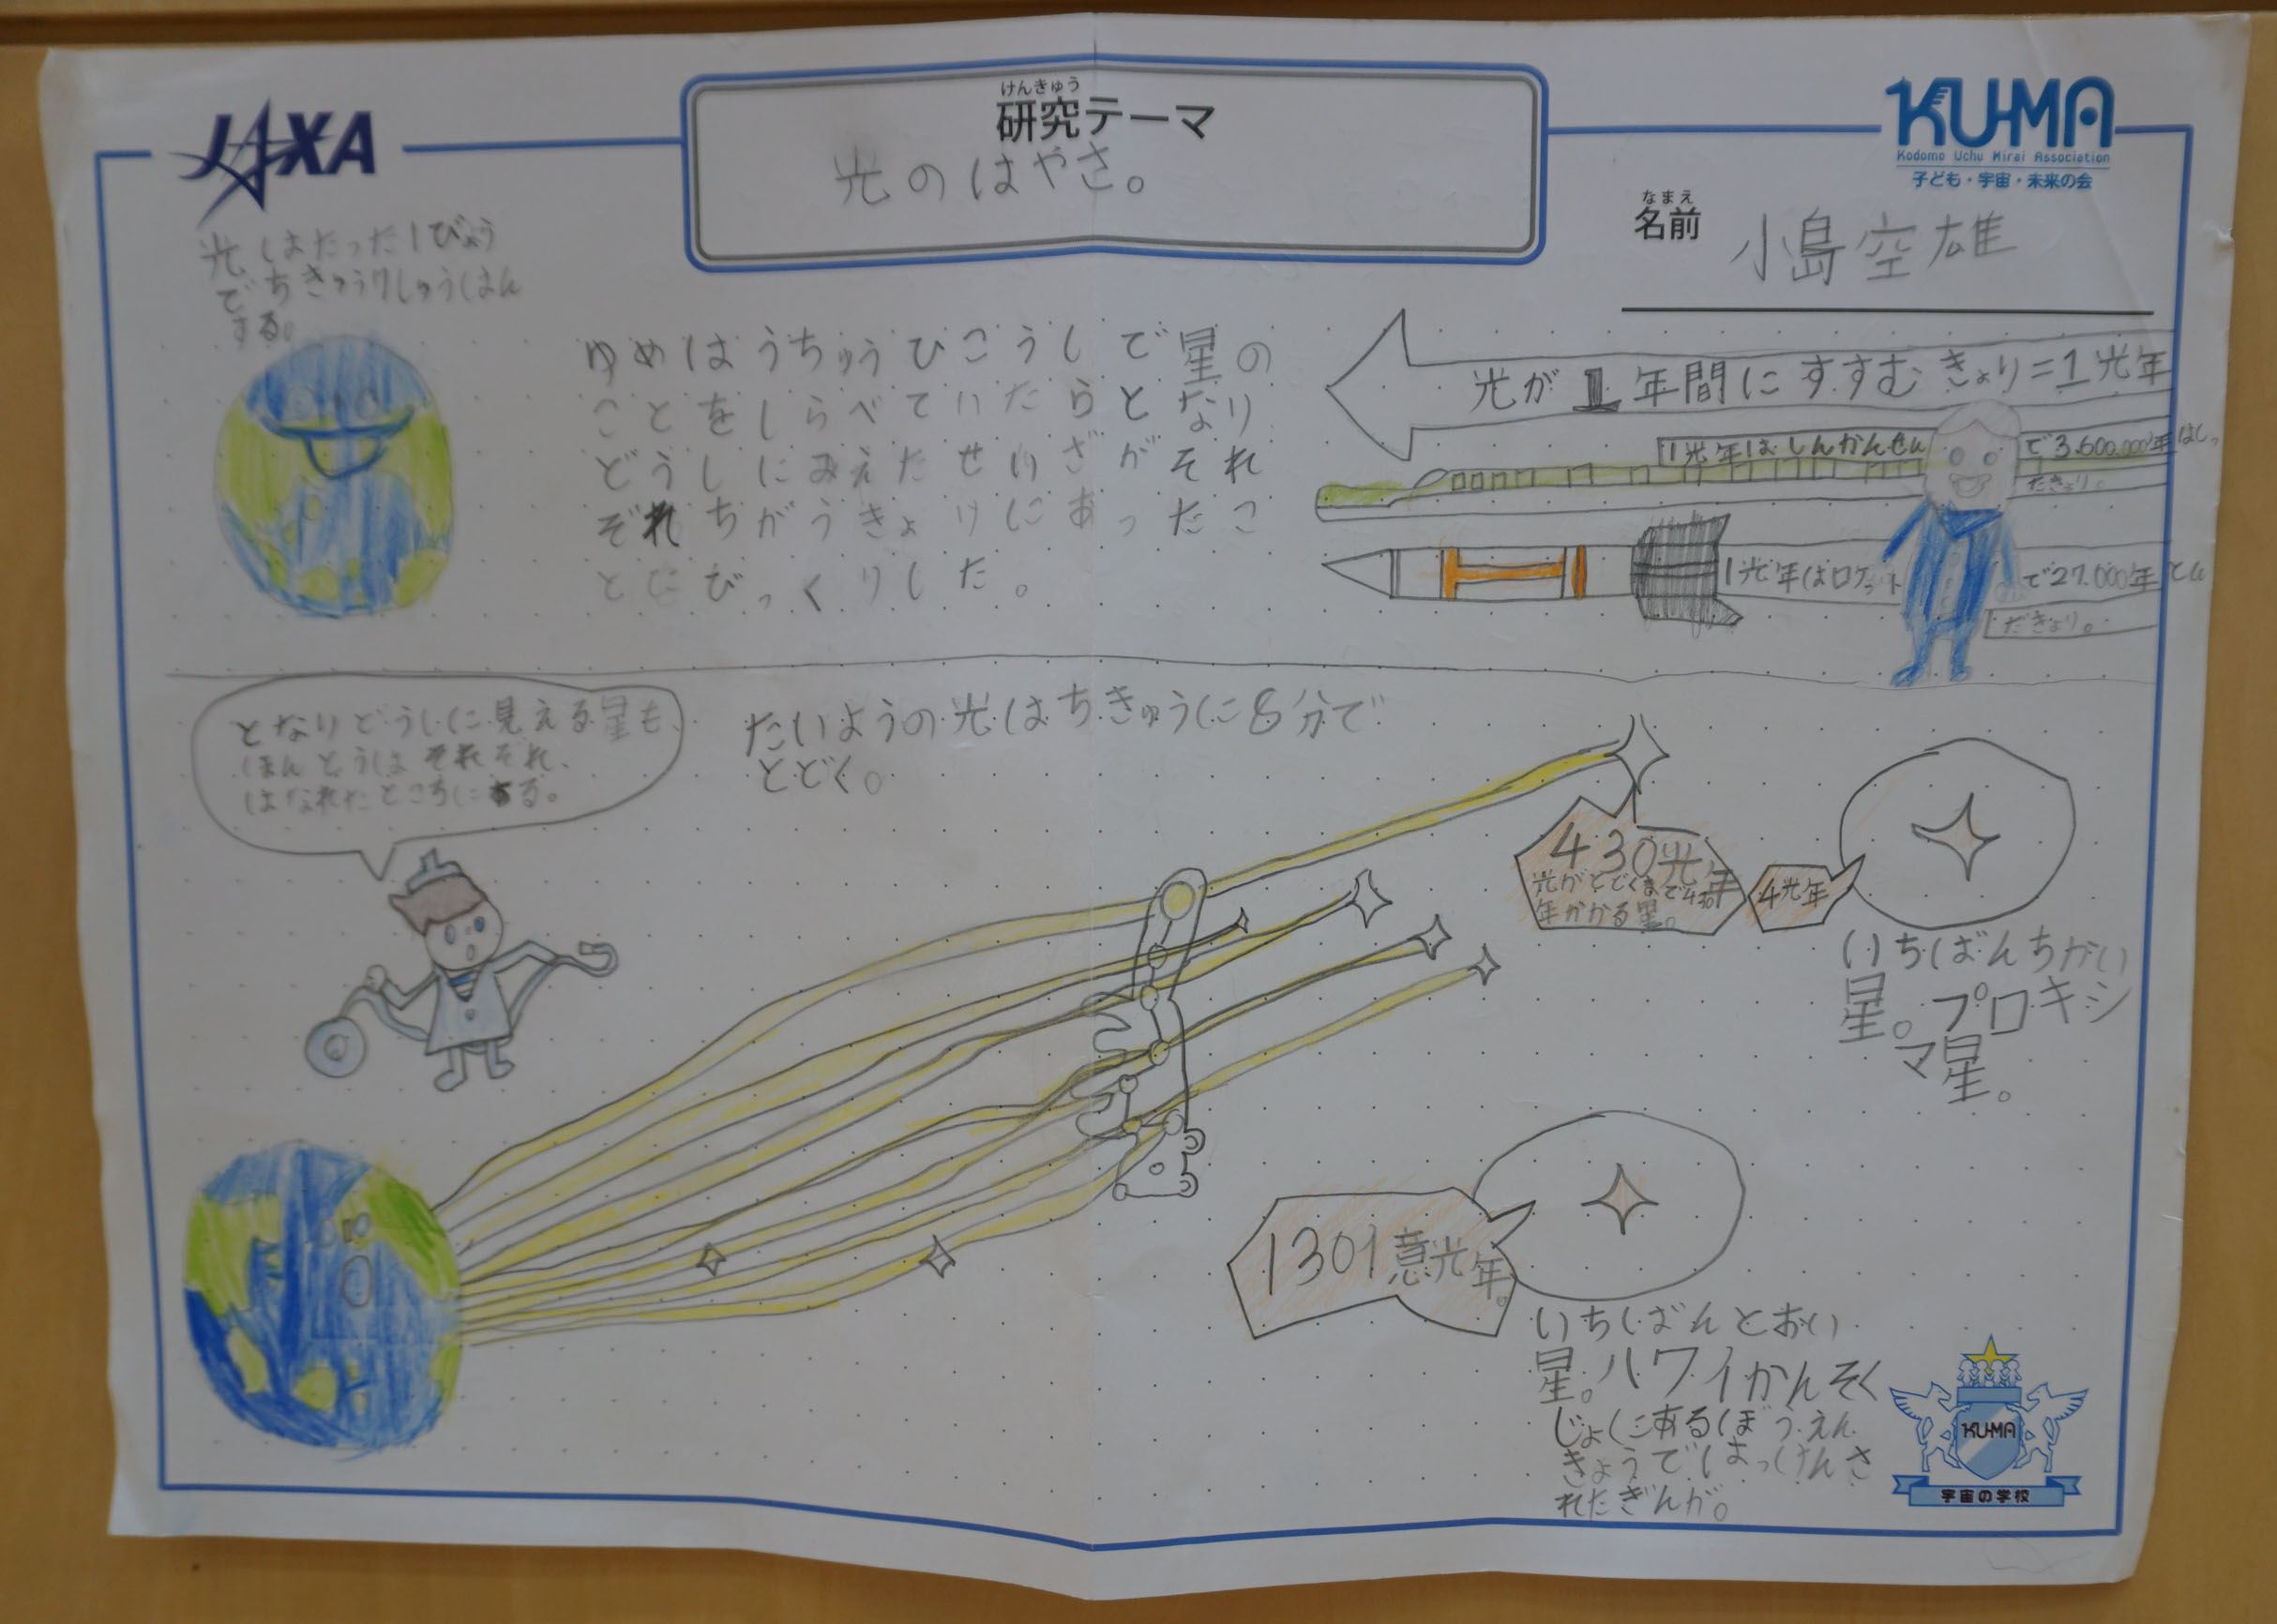 JAXA
けんきゅう
研究テーマ
光のはやさ。
KU-MA
Kodomo Uchu Mirai Association
子ども・宇宙・未来の会
なまえ
名前
小島空雄
光はたった1びょう
でちきゅう7しゅうはん
する。
ゆめはうちゅうひこうしで星の
ことをしらべていたらとなり
どうしにみえたせいざがそれ
ぞれちがうきょりにあったこ
とにびっくりした。
光が1年間にすすむきょり=1光年
1光年はしんかんせんで3.600.000年はしっ
たきょり。
1光年はロケットで27.000年とん
だきょり。
となりどうしに見える星も、
ほんとうはそれぞれ、
はなれたところにある。
たいようの光はちきゅうに8分で
とどく。
430光年
光がとどくまで430
年がかかる星。
4光年
いちばんちかい
星。プロキシ
マ星。
1301意光年。
いちばんとおい
星。ハワイかんそく
じょにあるぼうえん
きょうではっけんさ
れたぎんが。
KU-MA
宇宙の学校